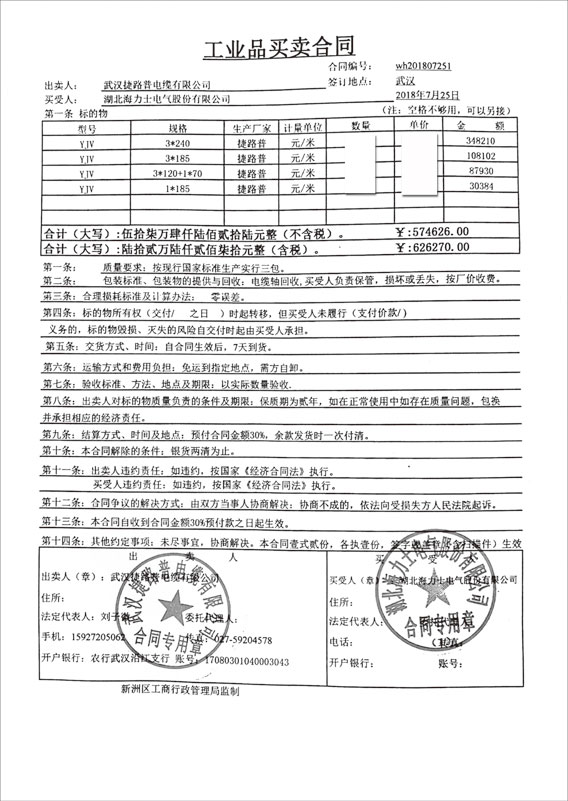 工业品买卖合同
合同编号： wh201807251
出卖人： 武汉捷路普电缆有限公司 签订地点： 武汉
买受人： 湖北海力士电气股份有限公司 2018年7月25日
第一条 标的物 （注：空格不够用，可以另接）
型号 规格 生产厂家 计量单位 数量 单价 金 额
YJV 3*240 捷路普 元/米 348210
YJV 3*185 捷路普 元/米 108102
YJV 3*120+1*70 捷路普 元/米 87930
YJV 1*185 捷路普 元/米 30384
合计（大写）:伍拾柒万肆仟陆佰贰拾陆元整（不含税）。 ￥:574626.00
合计（大写）:陆拾贰万陆仟贰佰柒拾元整（含税）。 ￥:626270.00
第一条： 质量要求：按现行国家标准生产实行三包。
第二条： 包装标准、包装物的提供与回收：电缆轴回收,买受人负责保管，损坏或丢失，按厂价收费。
第三条：合理损耗标准及计算办法： 零误差。
第四条：标的物所有权（交付/ 之日 ）时起转移，但买受人未履行（支付价款/）
义务的，标的物毁损、灭失的风险自交付时起由买受人承担。
第五条：交货方式、时间：自合同生效后，7天到货。
第六条：运输方式和费用负担：免运到指定地点，需方自卸。
第七条：验收标准、方法、地点及期限：以实际数量验收.
第八条：出卖人对标的物质量负责的条件及期限：保质期为贰年，如在正常使用中如存在质量问题，包换
并承担相应的经济责任。
第九条：结算方式、时间及地点：预付合同金额30%，余款发货时一次付清。
第十条：本合同解除的条件：银货两清为止。
第十一条：出卖人违约责任：如违约，按国家《经济合同法》执行。
买受人违约责任：如违约，按国家《经济合同法》执行。
第十二条：合同争议的解决方式：由双方当事人协商解决；协商不成的，依法向受损失方人民法院起诉。
第十三条：本合同自收到合同金额30%预付款之日起生效。
第十四条：其他约定事项：未尽事宜，协商解决。本合同壹式贰份，各执壹份，签字或盖章（含扫描件）生效
出 卖 人 买 受
出卖人（章）：武汉捷路普电缆有限公司 买受人（章）：湖北海力士电气股份有限公司
住所： 住所：
法定代表人：刘子 委托代理人： 法定代表人：
手机：15927205062 传真：027-59204578 电话： 传真：
开户银行：农行武汉沿江支行 账号：17080301040003043 开户银行： 账号：
武汉捷路普电缆有限公司
合同专用章
湖北海力士电气股份有限公司
合同专用章
新洲区工商行政管理局监制